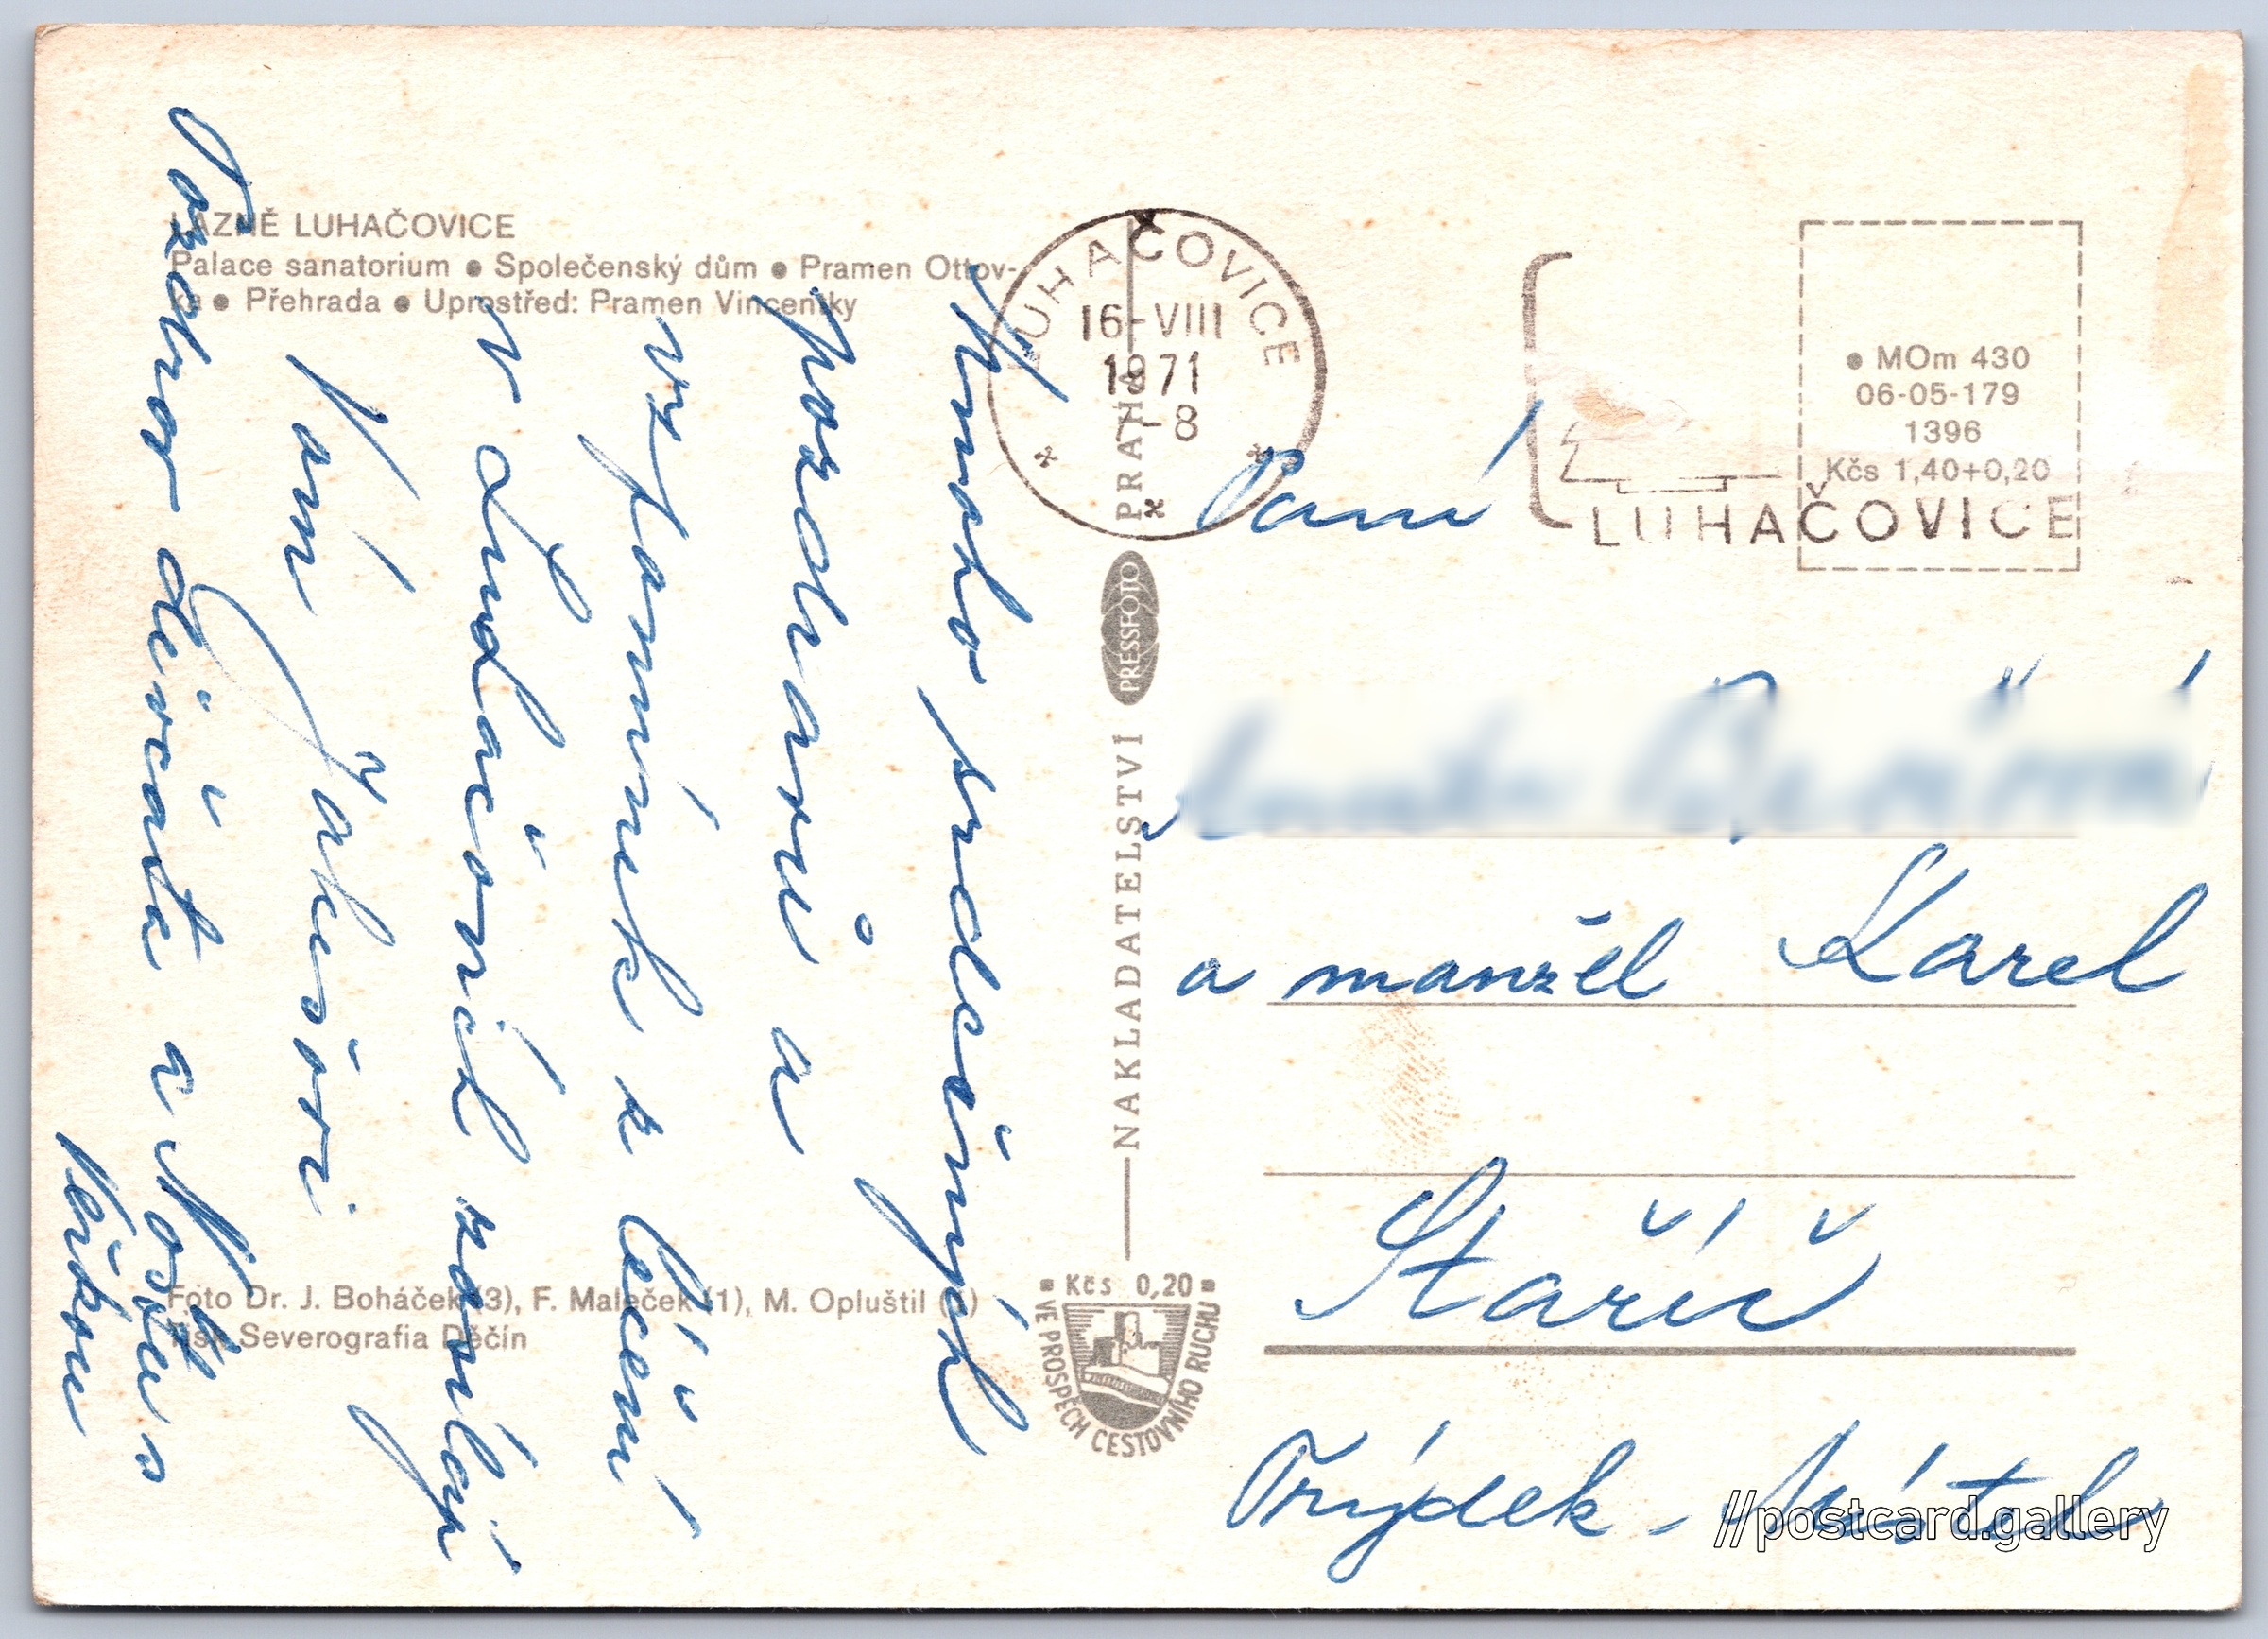 LÁZNĚ LUHAČOVICE
Palace sanatorium ● Společenský dům ● Pramen Ottov-
ka ● Přehrada ● Uprostřed: Pramen Vincentky
Mnoho srdečných
pozdravů a
vzpomínek z léčení
v Luhačovicích zasílají
Vám Žákovi
Pozdrav děvčata a
Foto Dr. J. Boháček (3), F. Maleček (1), M. Opluštil (1)
Tisk Severografia Děčín
LUHAČOVICE
16-VIII
1971
-8
NAKLADATELSTVÍ PRESSFOTO PRAHA
Kčs 0,20
VE PROSPĚCH CESTOVNÍHO RUCHU
LUHAČOVICE
● MOm 430
06-05-179
1396
Kčs 1,40+0,20
Paní
a manžel Karel
Staříč
Frýdek - Místek
//postcard.gallery